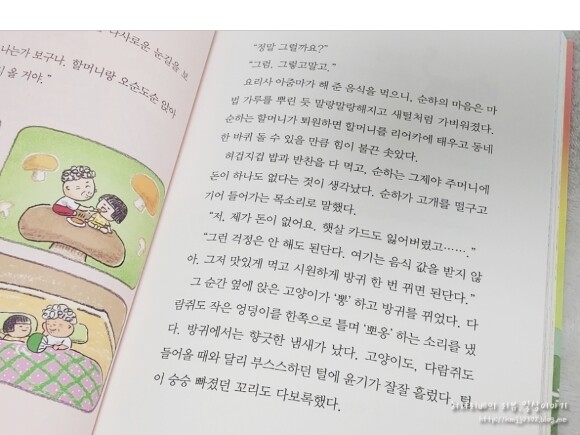 나사로운 눈길을 보
나는가 보구나. 할머니랑 오순도순 앉아
올 거야.”
“정말 그럴까요?”
“그럼, 그렇고말고.”
요리사 아줌마가 해 준 음식을 먹으니, 순하의 마음은 마
법 가루를 뿌린 듯 말랑말랑해지고 새털처럼 가벼워졌다.
순하는 할머니가 퇴원하면 할머니를 리어카에 태우고 동네
한 바퀴 돌 수 있을 만큼 힘이 불끈 솟았다.
허겁지겁 밥과 반찬을 다 먹고, 순하는 그제야 주머니에
돈이 하나도 없다는 것이 생각났다. 순하가 고개를 떨구고
기어 들어가는 목소리로 말했다.
“저, 제가 돈이 없어요. 햇살 카드도 잃어버렸고…….”
“그런 걱정은 안 해도 된단다. 여기는 음식 값을 받지 않
아. 그저 맛있게 먹고 시원하게 방귀 한 번 뀌면 된단다.”
그 순간 옆에 앉은 고양이가 ‘뽕’ 하고 방귀를 뀌었다. 다
람쥐도 작은 엉덩이를 한쪽으로 틀며 ‘뽀옹’ 하는 소리를 냈
다. 방귀에서는 향긋한 냄새가 났다. 고양이도, 다람쥐도
들어올 때와 달리 부스스하던 털에 윤기가 잘잘 흘렀다. 털
이 숭숭 빠졌던 꼬리도 다보록했다.